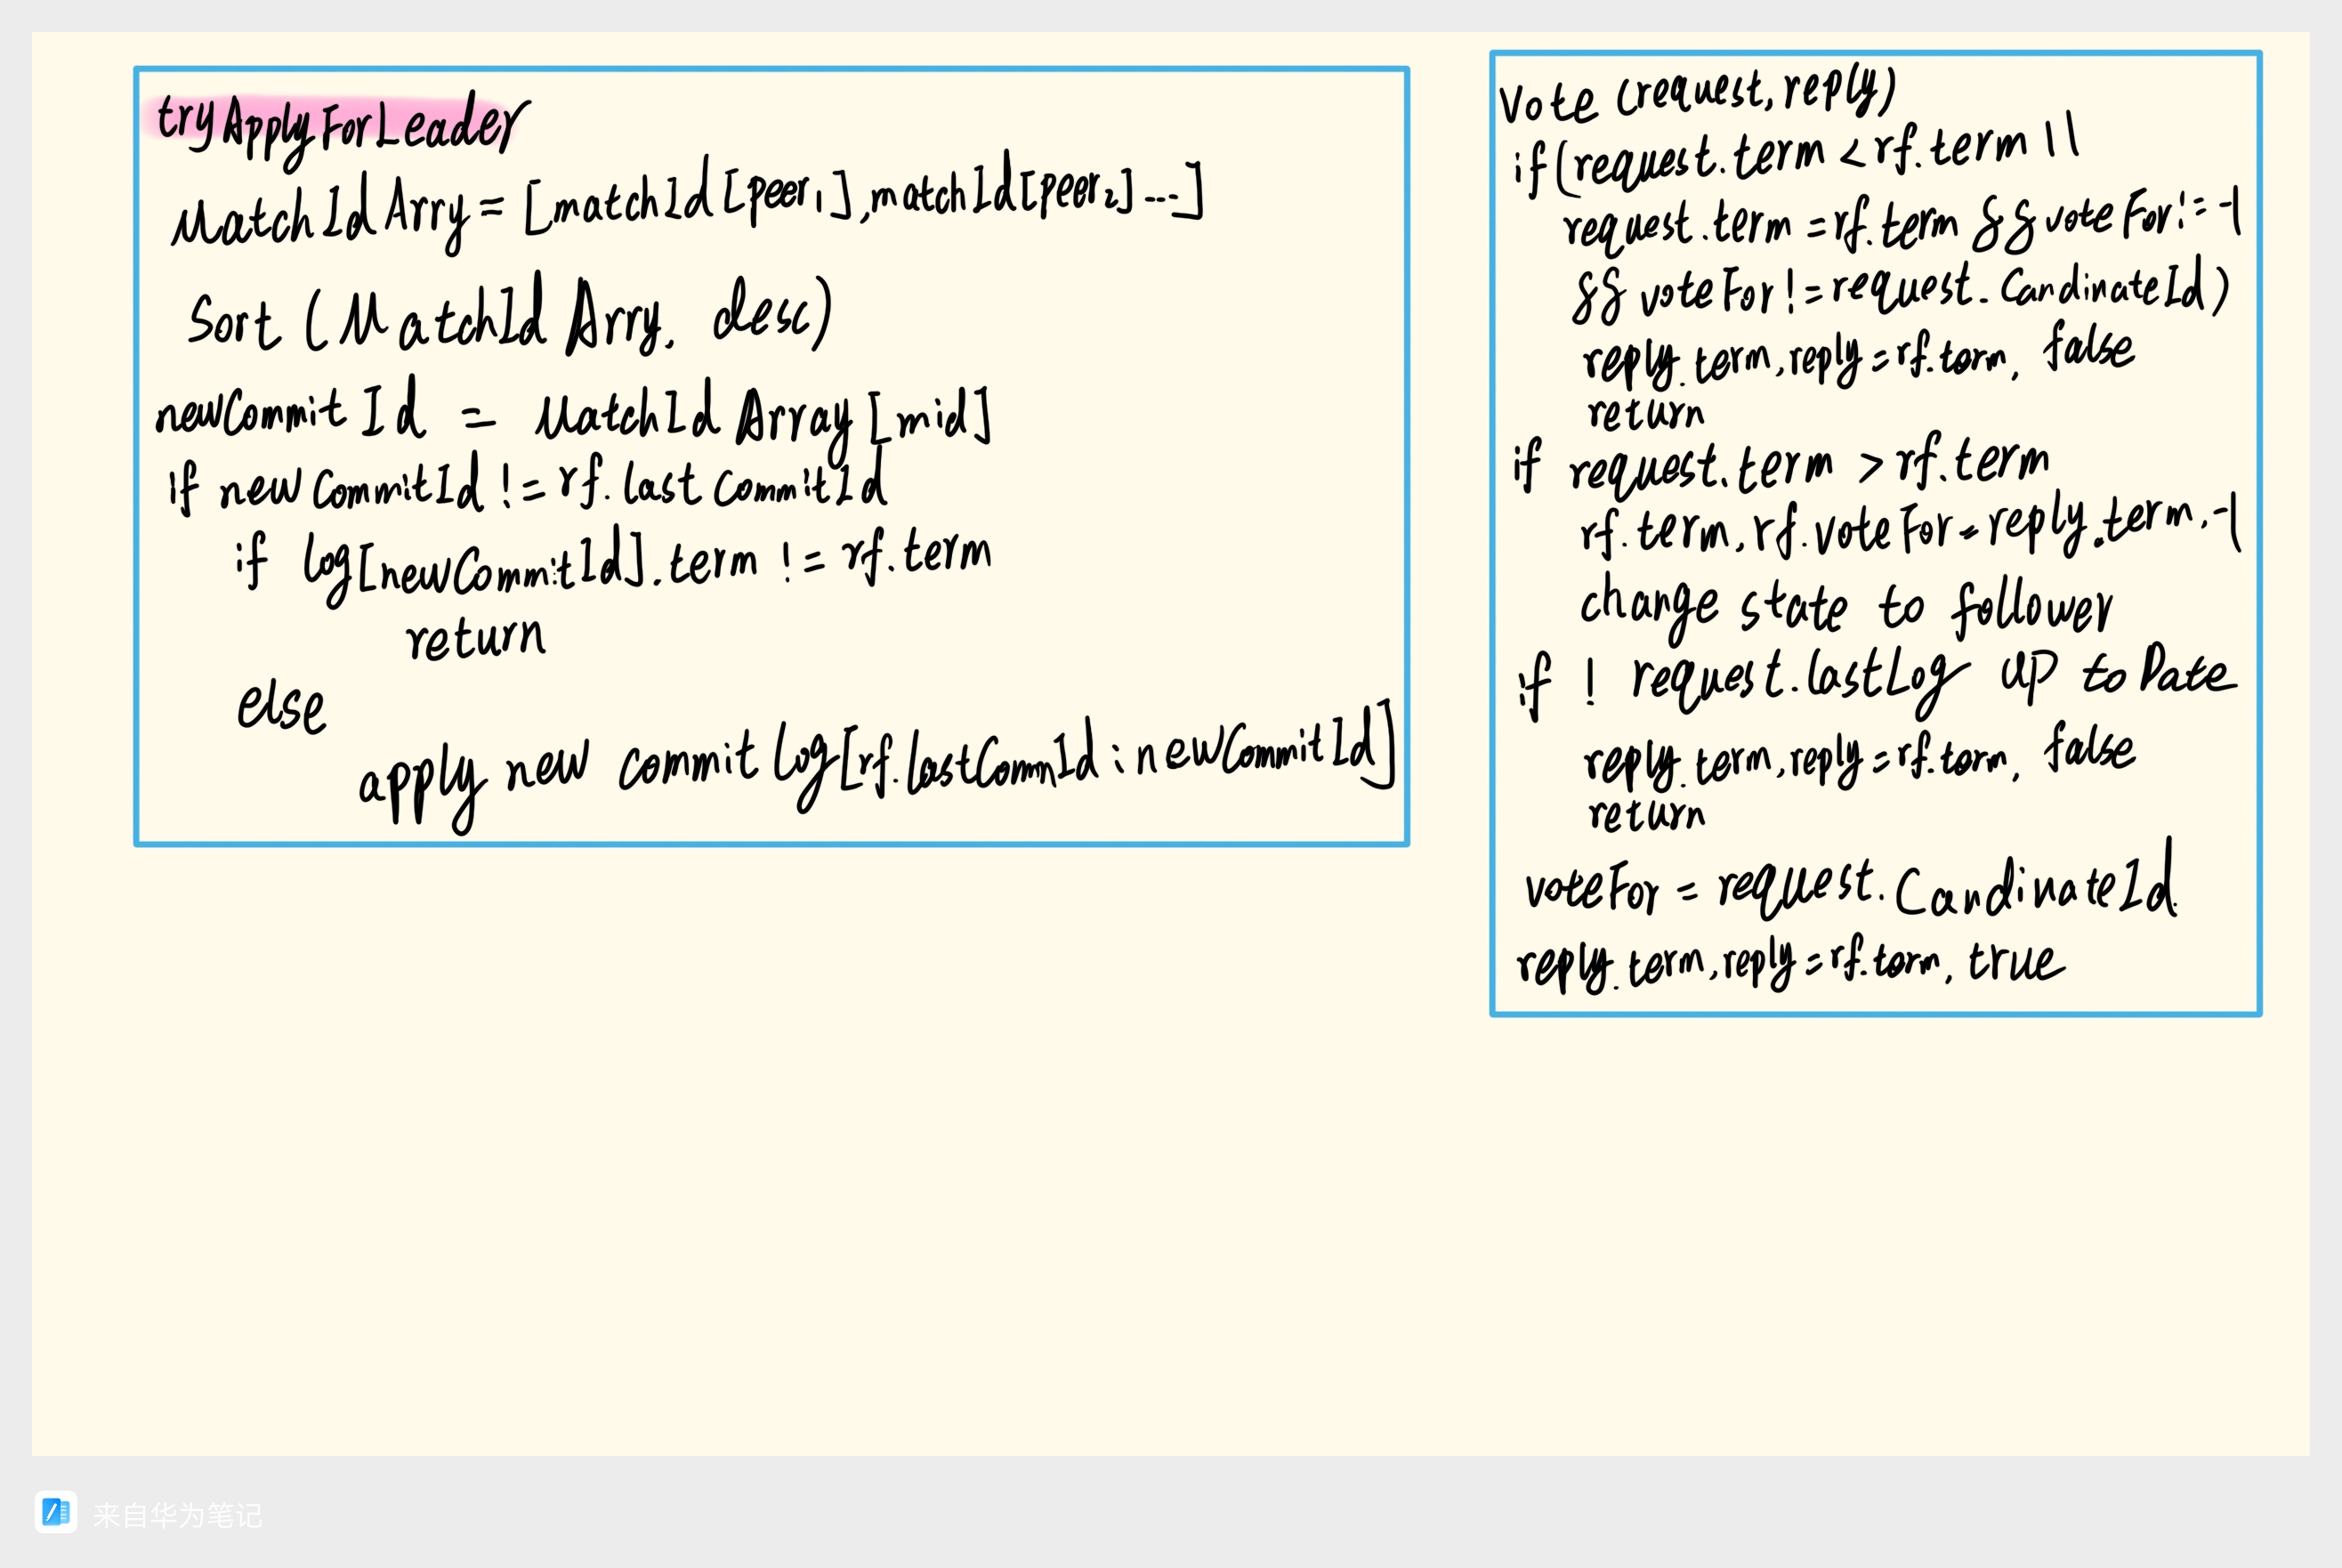 tryApplyForLeader
MatchIdArry = [matchId[peer1], matchId[peer2]---]
Sort (MatchIdArry, desc)
newCommitId = MatchIdArray[mid]
if newCommitId != rf.lastCommitId
if log[newCommitId].term != rf.term
return
else
apply new commit log[rf.lastCommId : newCommitId]
Vote (request, reply)
if (request.term < rf.term ||
request.term = rf.term && voteFor != -1
&& voteFor != request.CandinateId)
reply.term, reply = rf.term, false
return
if request.term > rf.term
rf.term, rf.voteFor = reply.term, -1
change state to follower
if ! request.lastLog up to Date
reply.term, reply = rf.term, false
return
voteFor = request.CandinateId
reply.term, reply = rf.term, true
来自华为笔记